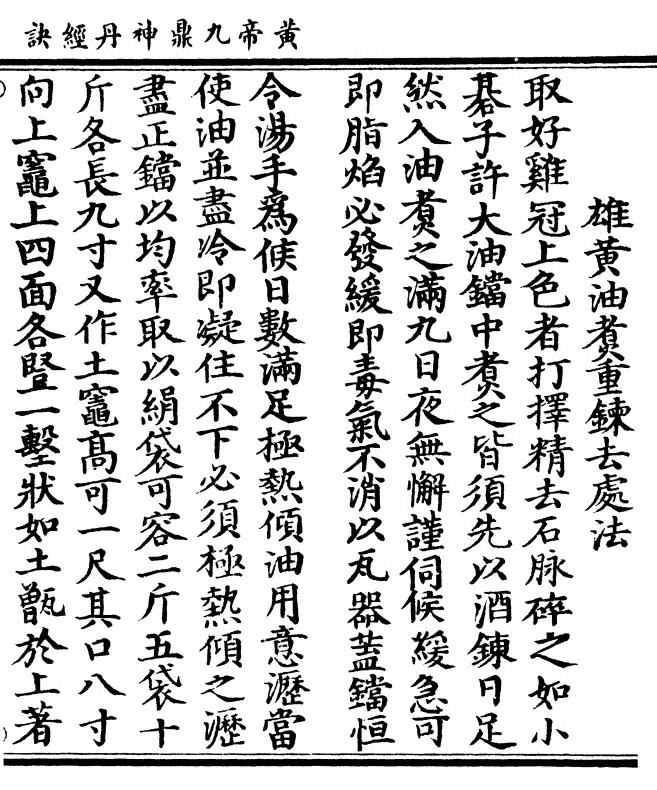 黃帝九鼎神丹經訣
雄黃油煑重鍊去處法
取好雞冠上色者打擇精去石脉碎之如小
碁子許大油鐺中煑之皆須先以酒鍊日足
然入油煑之滿九日夜無懈謹伺候緩急可
即脂焰必發緩即毒氣不消以瓦器蓋鐺恒
令湯手爲候日數滿足極熱傾油用意瀝當
使油並盡冷即凝住不下必須極熱傾之瀝
盡正鐺以均率取以絹袋可容二斤五袋十
斤各長九寸又作土竈高可一尺其口八寸
向上竈上四面各竪一墼狀如土甑於上著